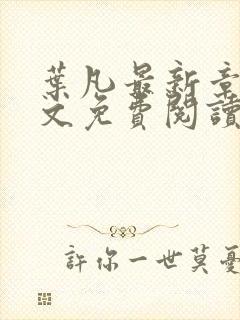 葉凡最新章
文免費閱讀
許你一世莫憂